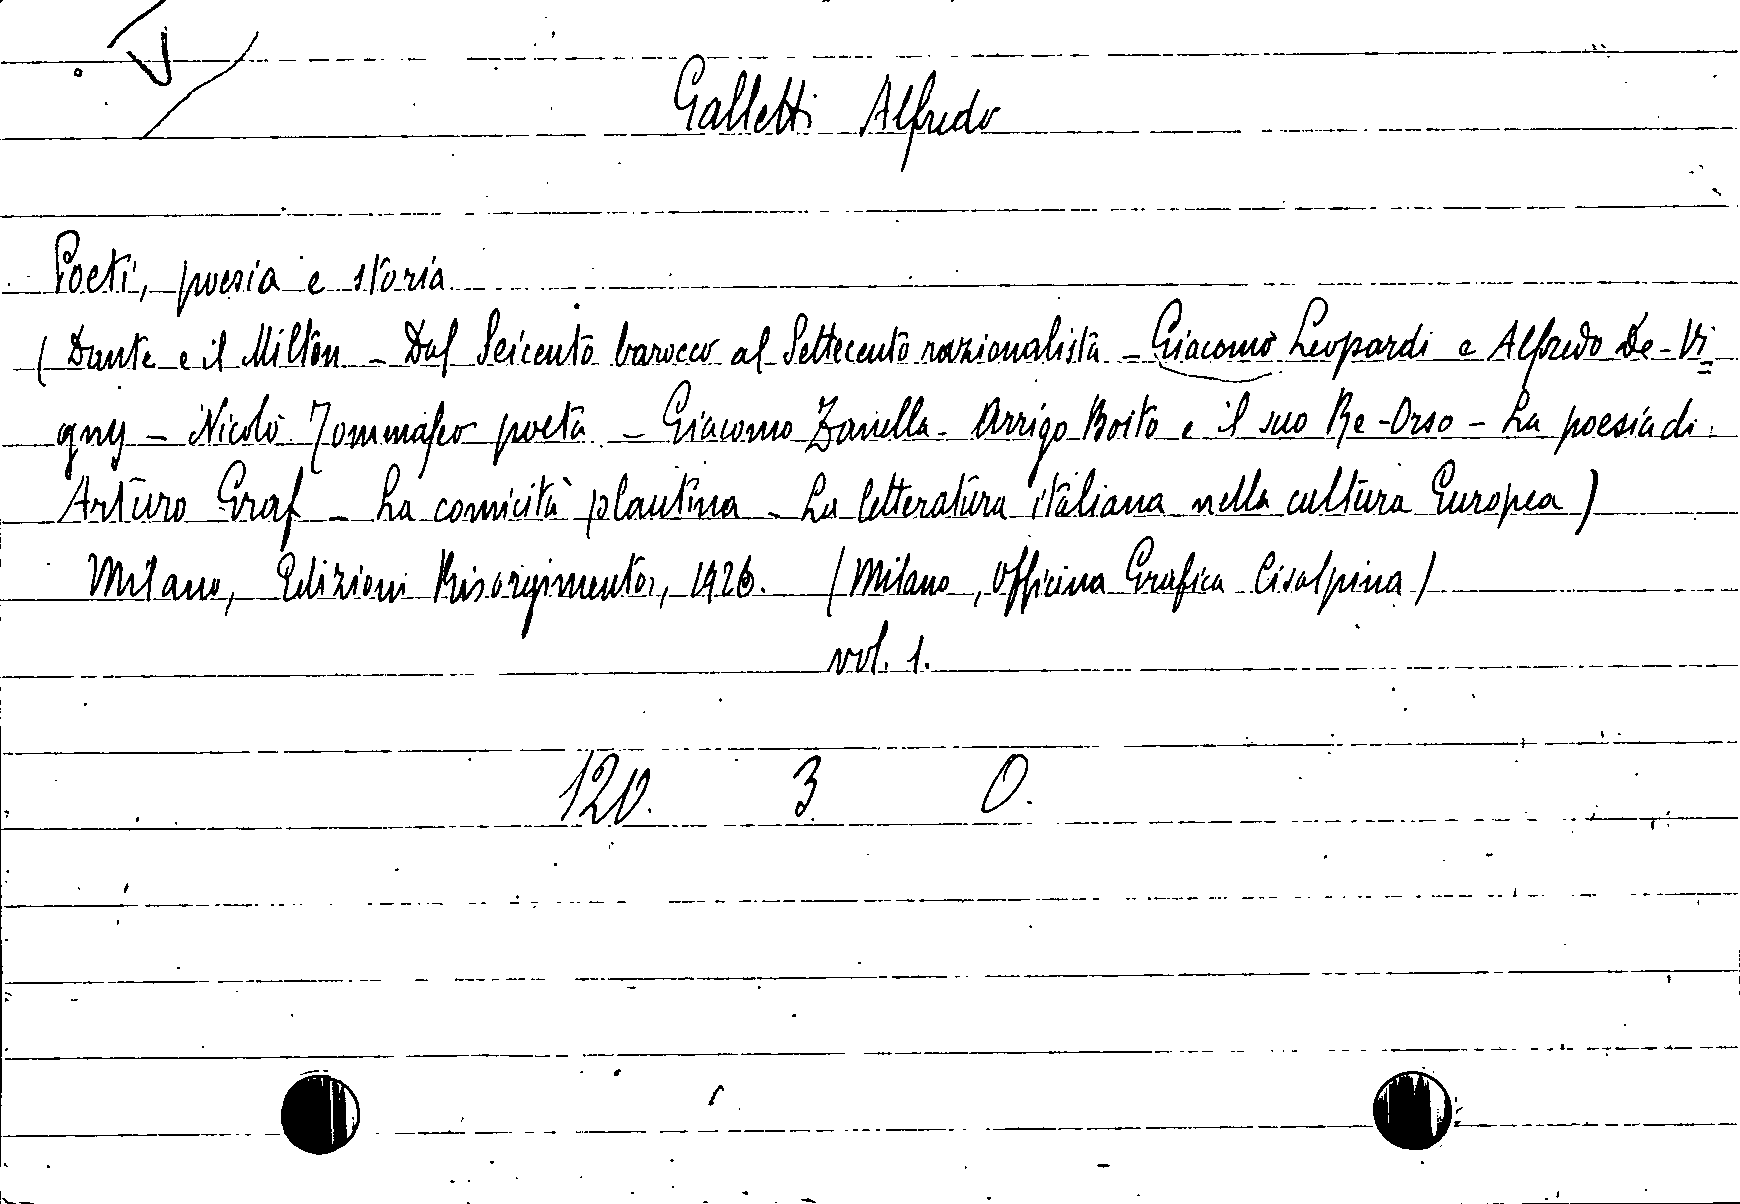 V
Galletti Alfredo
Poeti, poesia e storia
(Dante e il Milton - Dal Seicento barocco al Settecento razionalista - Giacomo Leopardi e Alfredo De-Vi
gny - Nicolò Tommaseo poeta - Giacomo Zanella - Arrigo Boito e il suo Re-Orso - La poesia di
Arturo Graf - La comicità plautina - La letteratura italiana nella cultura Europea)
Milano, Edizioni Risorgimento, 1926. (Milano, Officina Grafica Cisalpina)
vol. 1.
120. 3 0.